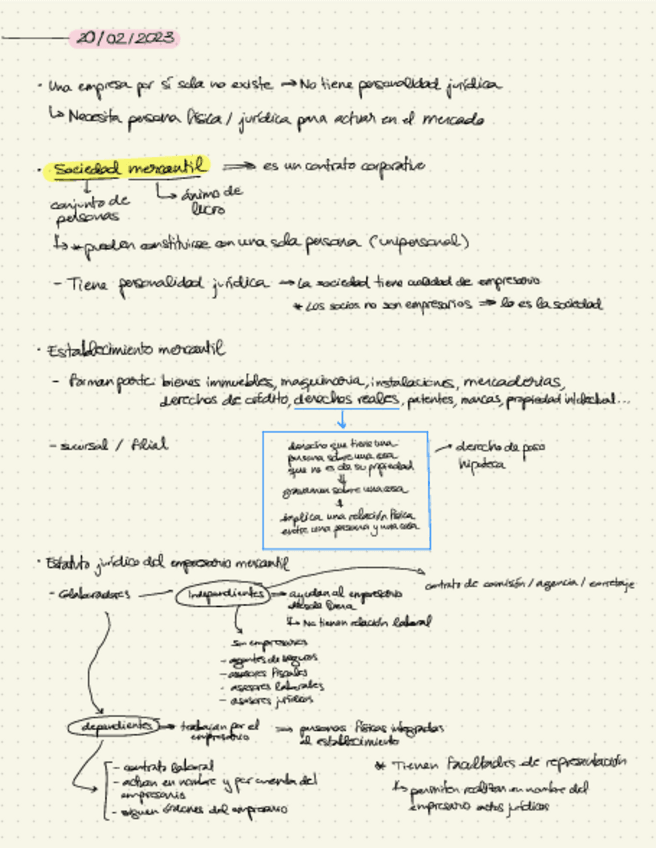 20/02/2023
· Una empresa por sí sola no existe → No tiene personalidad jurídica
↳ Necesita persona física / jurídica para actuar en el mercado
· Sociedad mercantil ⇒ es un contrato corporativo
↓ conjunto de personas
↳ ánimo de lucro
↳ * pueden constituirse con una sola persona (unipersonal)
- Tiene personalidad jurídica → La sociedad tiene cualidad de empresario
* Los socios no son empresarios ⇒ lo es la sociedad
· Establecimiento mercantil
- Forman parte: bienes inmuebles, maquinaria, instalaciones, mercaderías,
derechos de crédito, derechos reales, patentes, marcas, propiedad intelectual...
- sucursal / filial
derecho que tiene una
persona sobre una cosa
que no es de su propiedad
↓
gravamen sobre una cosa
↓
implica una relación física
entre una persona y una cosa
→ derecho de paso
hipoteca
· Estatuto jurídico del empresario mercantil
- Colaboradores — Independientes → ayudan al empresario
desde fuera
↳ No tienen relación laboral
contrato de comisión / agencia / corretaje
son empresarios
- agentes de seguros
- asesores fiscales
- asesores laborales
- asesores jurídicos
dependientes → trabajan por el
empresario
⇒ personas físicas integradas
al establecimiento
- contrato laboral
- actúan en nombre y por cuenta del
empresario
- siguen órdenes del empresario
* Tienen facultades de representación
↳ permiten realizar en nombre del
empresario actos jurídicos